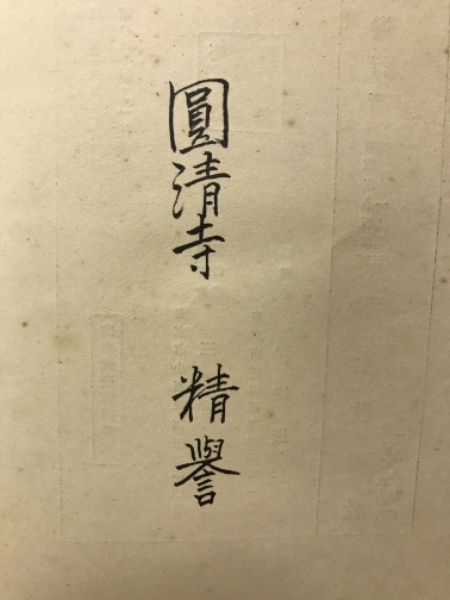 圓清寺 精譽